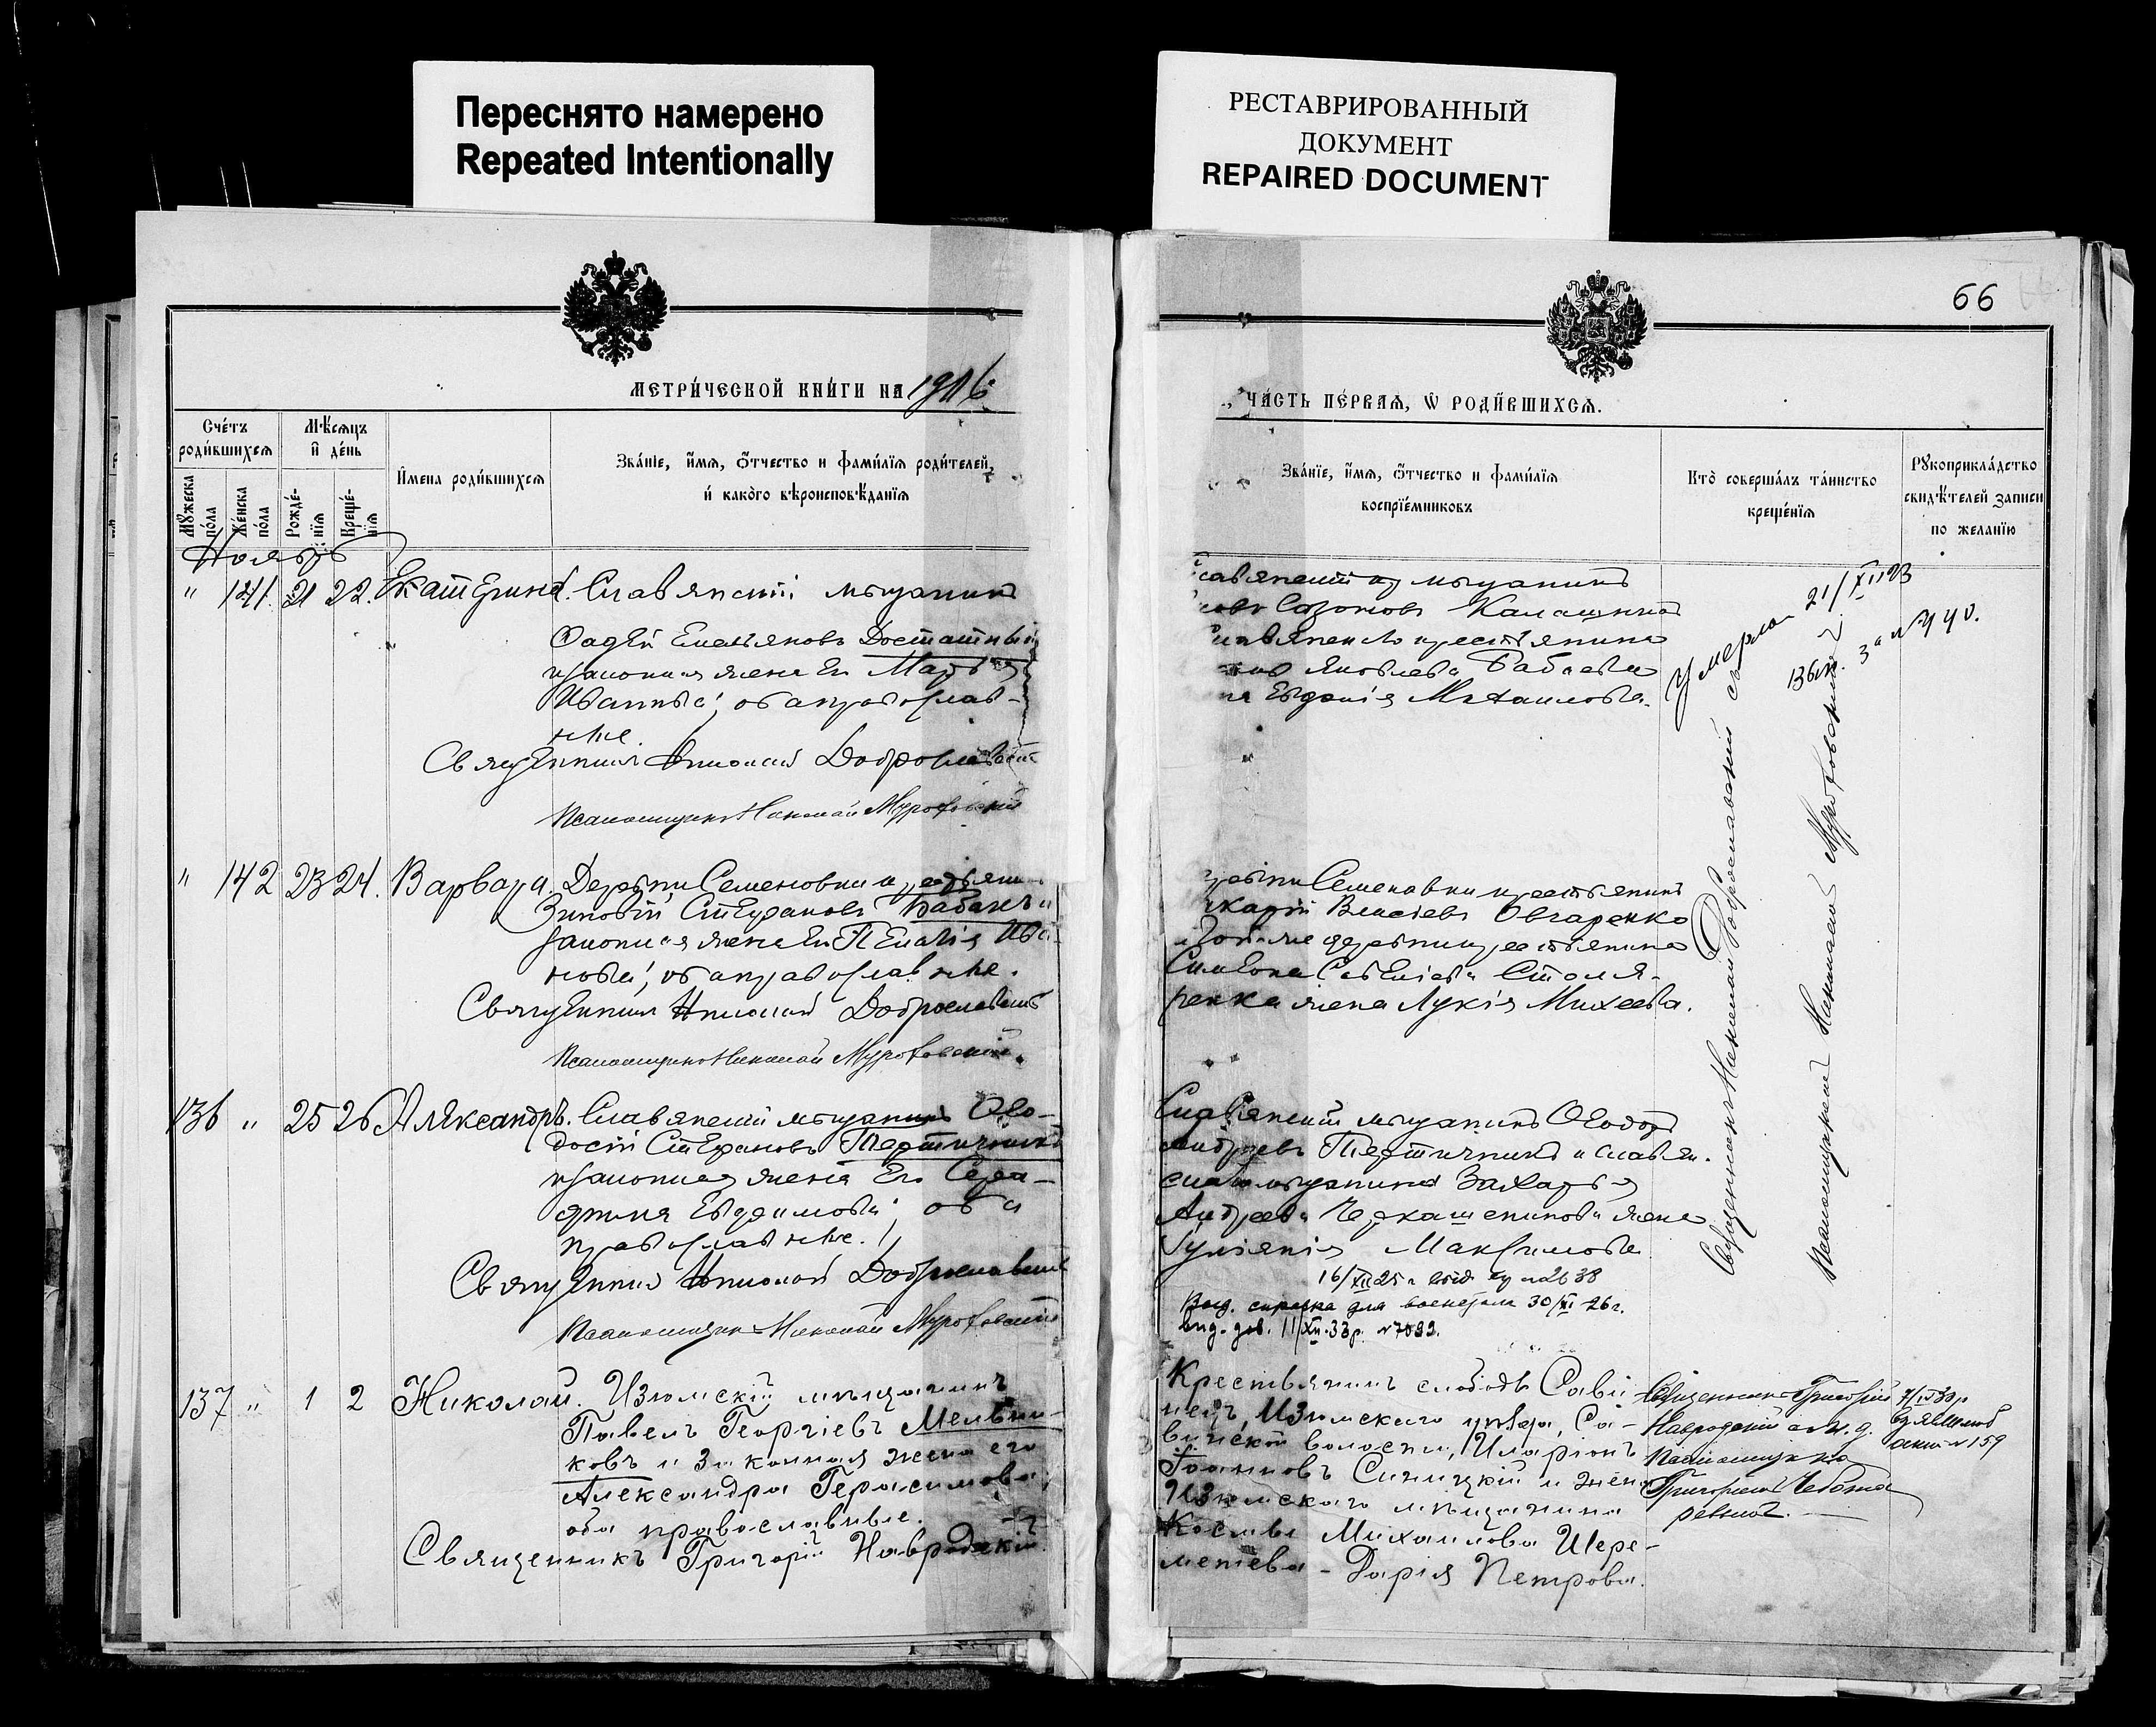 Переснято намерено
Repeated Intentionally
РЕСТАВРИРОВАННЫЙ
ДОКУМЕНТ
REPAIRED DOCUMENT
66
МЕТРИ́ЧЕСКОЙ КНИ́ГИ НА 1906
ЧА́СТЬ ПЕ́РВАЯ, Ѡ РОДИ́ВШИХСЯ.
Сче́тъ
роди́вшихся
Мѣ́сяцъ
и де́нь
Мꙋжеска
по́ла
Же́нска
по́ла
Рожде́-
нїя
Креще́-
нїя
И́мена роди́вшихся
Зва́нїе, и́мя, ѻ́тчество и фами́лїя роди́телей,
и́ како́го вѣроисповѣ́данїя
Зва́нїе, и́мя, ѻ́тчество и фами́лїя
воспрїе́мниковъ
Кто̀ соверша́лъ та́инство
креще́нїя
Рꙋкоприкла́дство
свидѣ́телей записи
по жела́нїю
Ноябрь
" 141. 21 22. Екатерина. Славянскій мѣщанинъ
Фадѣй Емельяновъ Достатній
законная жена его Марья
Иванова; оба православ-
ные.
Священникъ Николай Доброславскій
Псаломщикъ Николай Муроховскій
мѣщанинъ
Созоновъ
крестьянина
Яковлева Бабаева
Евдокія Михаилова.
Умерла 21/XII 23
за № 440.
" 142 23 24. Варвара. Деревни Семеновки крестьянинъ
Зиновій Стефановъ Бабакъ и
законная жена его Пелагія Ива-
нова; оба православные.
Священникъ Николай Доброславскій
Псаломщикъ Николай Муроховскій.
Семеновки крестьянинъ
Власіевъ Овчаренко
и той же деревни крестьянина
Симеона Савеліева Столя-
ренка жена Лукія Михеева.
136 " 25 26 Александръ. Славянскій мѣщанинъ Ѳео-
досій Стефановъ Пертичный
и законная жена его Сера-
фима Евдокимова; оба
православные.
Священникъ Николай Доброславскій
Псаломщикъ Николай Муроховскій
Славянскій мѣщанинъ Ѳеодоръ
Андреевъ Пертичный и славян-
скаго мѣщанина Захарья
Андреева жена
Іуліанія Максимова
16/XII 25 г. № 2638
Выд. справка для 30/XI 26 г.
выд. 11/XII.33р. № 7092.
Священникъ Николай Доброславскій
Псаломщикъ Николай Муроховскій
137 " 1 2 Николай. Изюмскій мѣщанинъ
Павелъ Георгіевъ Мельни-
ковъ и законная жена его
Александра Герасимова,
оба православные.
Священникъ Григорій Навродскій.
Крестьянинъ слободы Сави-
нецъ, Изюмскаго уѣзда, Са-
винской волости, Иларіонъ
Іоанновъ Синицкій и жена
Изюмскаго мѣщанина
Космы Михаилова Шере-
метева - Дарія Петрова.
Священникъ Григорій
Навродскій
Псаломщикъ
Григорій Чебота-
ревъ
№ 159